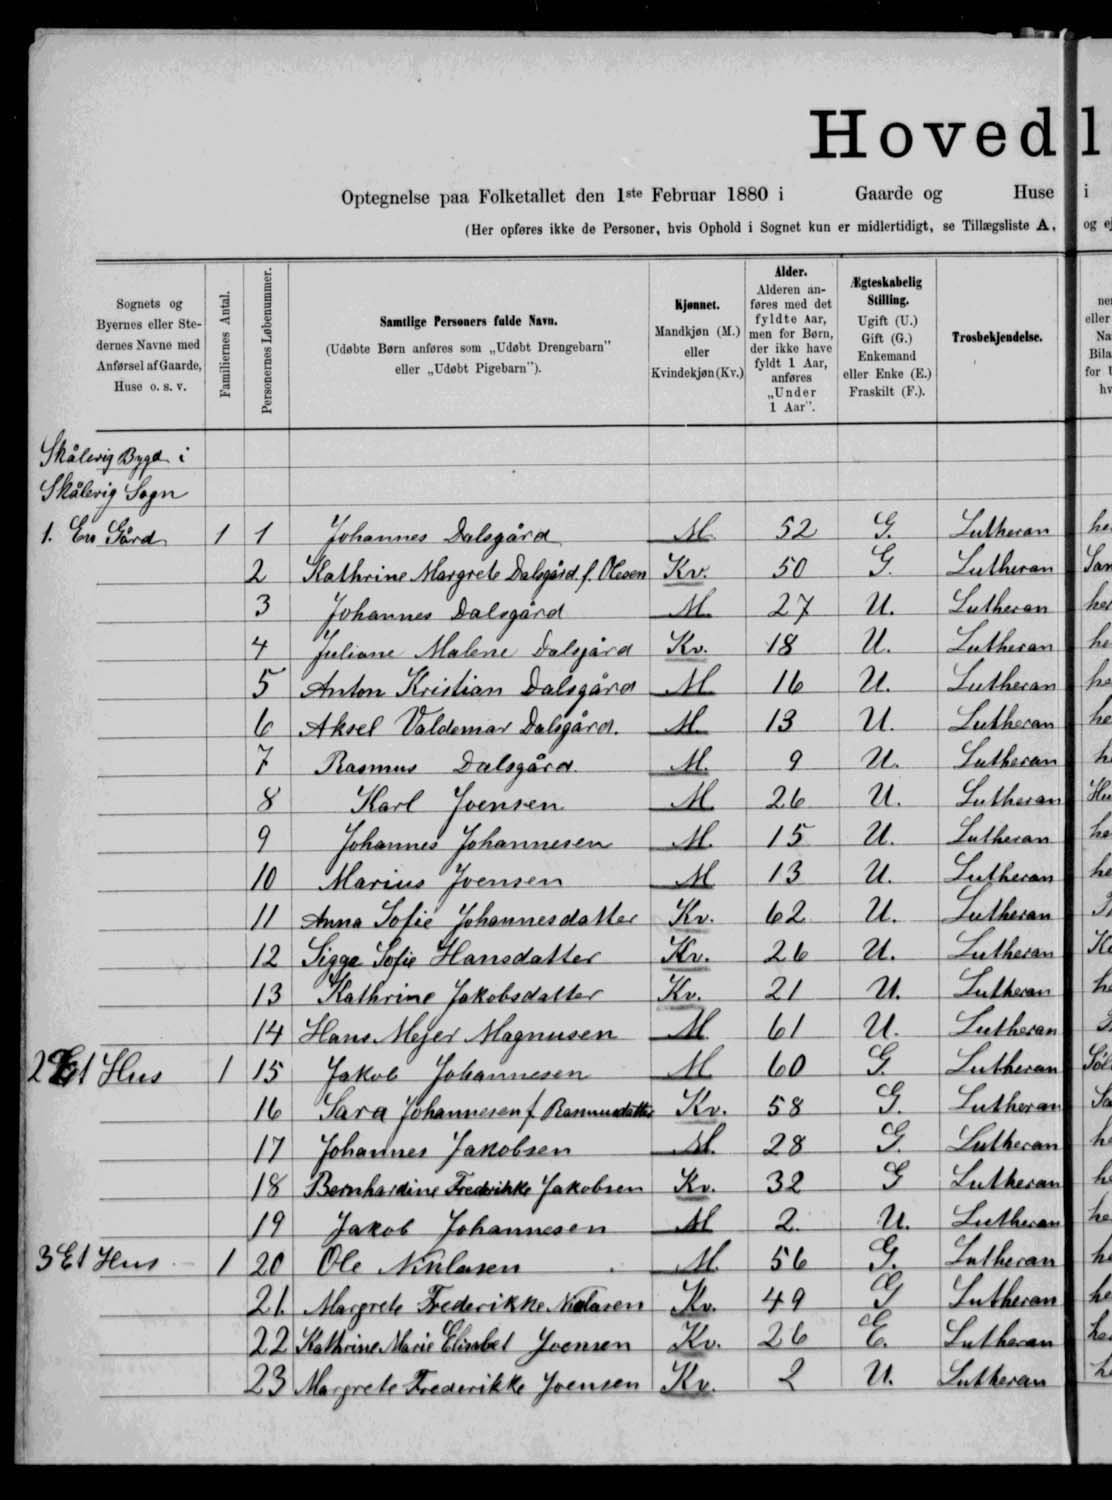 Hovedl
Optegnelse paa Folketallet den 1ste Februar 1880 i Gaarde og Huse i
(Her opføres ikke de Personer, hvis Ophold i Sognet kun er midlertidigt, se Tillægsliste A, og ej
Sognets og Byernes eller Ste-dernes Navne med Anførsel af Gaarde, Huse o. s. v.
Familiernes Antal.
Personernes Løbenummer.
Samtlige Personers fulde Navn.
(Udøbte Børn anføres som „Udøbt Drengebarn" eller „Udøbt Pigebarn").
Kjønnet.
Mandkjøn (M.) eller Kvindekjøn (Kv.)
Alder.
Alderen an-føres med det fyldte Aar, men for Børn, der ikke have fyldt 1 Aar, anføres „Under 1 Aar".
Ægteskabelig Stilling.
Ugift (U.) Gift (G.) Enkemand eller Enke (E.) Fraskilt (F.).
Trosbekjendelse.
Skålevig Bygd i
Skålevig Sogn
1. En Gård 1 1 Johannes Dalsgård M. 52 G. Lutheran
2 Kathrine Margrete Dalsgård f. Olesen Kv. 50 G. Lutheran
3 Johannes Dalsgård M. 27 U. Lutheran
4 Juliane Malene Dalsgård Kv. 18 U. Lutheran
5 Anton Kristian Dalsgård M. 16 U. Lutheran
6 Aksel Valdemar Dalsgård. M. 13 U. Lutheran
7 Rasmus Dalsgård. M. 9 U. Lutheran
8 Karl Joensen M. 26 U. Lutheran
9 Johannes Johannesen M. 15 U. Lutheran
10 Marius Joensen M 13 U. Lutheran
11 Anna Sofie Johannesdatter Kv. 62 U. Lutheran
12 Sigge Sofie Hansdatter Kv. 26 U. Lutheran
13 Kathrine Jakobsdatter Kv. 21 U. Lutheran
14 Hans Mejer Magnusen M. 61 U. Lutheran
2 Et Hus 1 15 Jakob Johannesen M 60 G. Lutheran
16 Sara Johannesen f Rasmusdatter Kv. 58 G. Lutheran
17 Johannes Jakobsen M. 28 G. Lutheran
18 Bernhardine Frederikke Jakobsen Kv. 32 G Lutheran
19 Jakob Johannesen M 2. U. Lutheran
3 Et Hus 1 20 Ole Niklasen M. 56 G. Lutheran
21. Margrete Frederikke Niklasen Kv. 49 G Lutheran
22 Kathrine Marie Elisabet Joensen Kv. 26 E. Lutheran
23 Margrete Frederikke Joensen Kv. 2 U. Lutheran